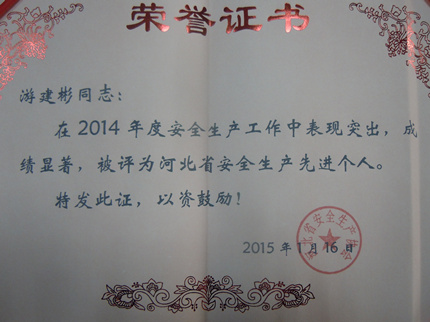 荣誉证书
游建彬同志：
在2014年度安全生产工作中表现突出，成
绩显著，被评为河北省安全生产先进个人。
特发此证，以资鼓励！
2015年1月16日